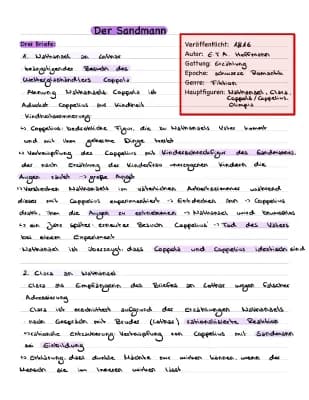 Der Sandmann
Drei Briefe:
Veröffentlicht: 1816
Autor: E.T.A. Hoffmann
Gattung: Erzählung
Epoche: schwarze Romantik
Genre: Fiktion
Hauptfiguren: Nathanael, Clara,
Coppola / Coppelius,
Olimpia
1. Nathanael an Lothar
beängstigender Besuch des
Wetterglashändlers Coppola
Ahnung Nathanaels Coppola ist
Advokat Coppelius aus Kindheit
Kindheitserinnerung
↳ Coppelius: bedrohliche Figur, die zu Nathanaels Vater kommt
und mit ihm geheime Dinge treibt
↳ Verknüpfung des Coppelius mit Kinderschreckfigur des Sandmanns,
der nach Erzählung der Kinderfrau unerzogenen Kindern die
Augen raubt → große Angst
↳ Verstecken Nathanaels im väterlichen Arbeitszimmer während
dieser mit Coppelius experimentiert → Entdecken ihn → Coppelius
droht, ihm die Augen zu → Nathanael wird bewusstlos
↳ ein Jahr später: erneuter Besuch Coppelius → Tod des Vaters
bei einem Experiment
Nathanael ist überzeugt, dass Coppola und Coppelius identisch sind
2. Clara an Nathanael
Clara als Empfängerin des Briefes an Lothar wegen falscher
Adressierung
Clara ist erschüttert aufgrund der Erzählungen Nathanaels
nach Gespräch mit Bruder (Lothar) rationalisierte Reaktion
↳ rationale Entzauberung: Verknüpfung von Coppelius mit Sandmann
sei Einbildung
↳ Erklärung, dass dunkle Mächte nur wirken können, wenn der
Mensch sie im Inneren wirken lässt